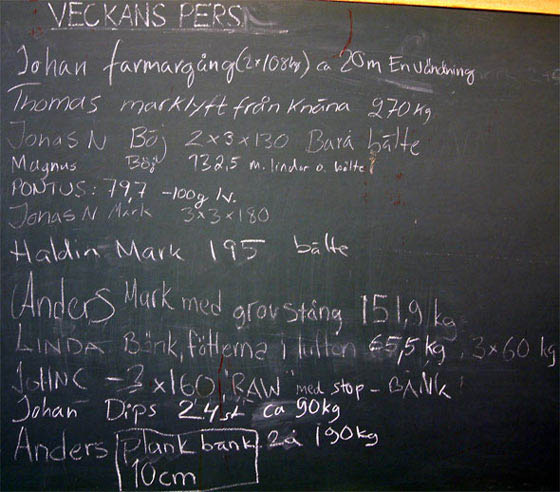 VECKANS PERS
Johan farmargång (2x108kg) ca 20m En vändning
Thomas marklyft från knäna 270kg
Jonas N Böj 2x3x130 Bara bälte
Magnus Böj 132,5 m. lindor o. bälte
PONTUS: 79,7 -100g lv.
Jonas N Mark 3x3x180
Haldin Mark 195 bälte
(Anders Mark med grov stång 151,9 kg
LINDA Bänk, fötterna i luften 65,5 kg, 3x60 kg
JOHN C -3x160 "RAW" med stop - BÄNK
Johan Dips 24st ca 90kg
Anders plankbänk 2a 190kg
10cm